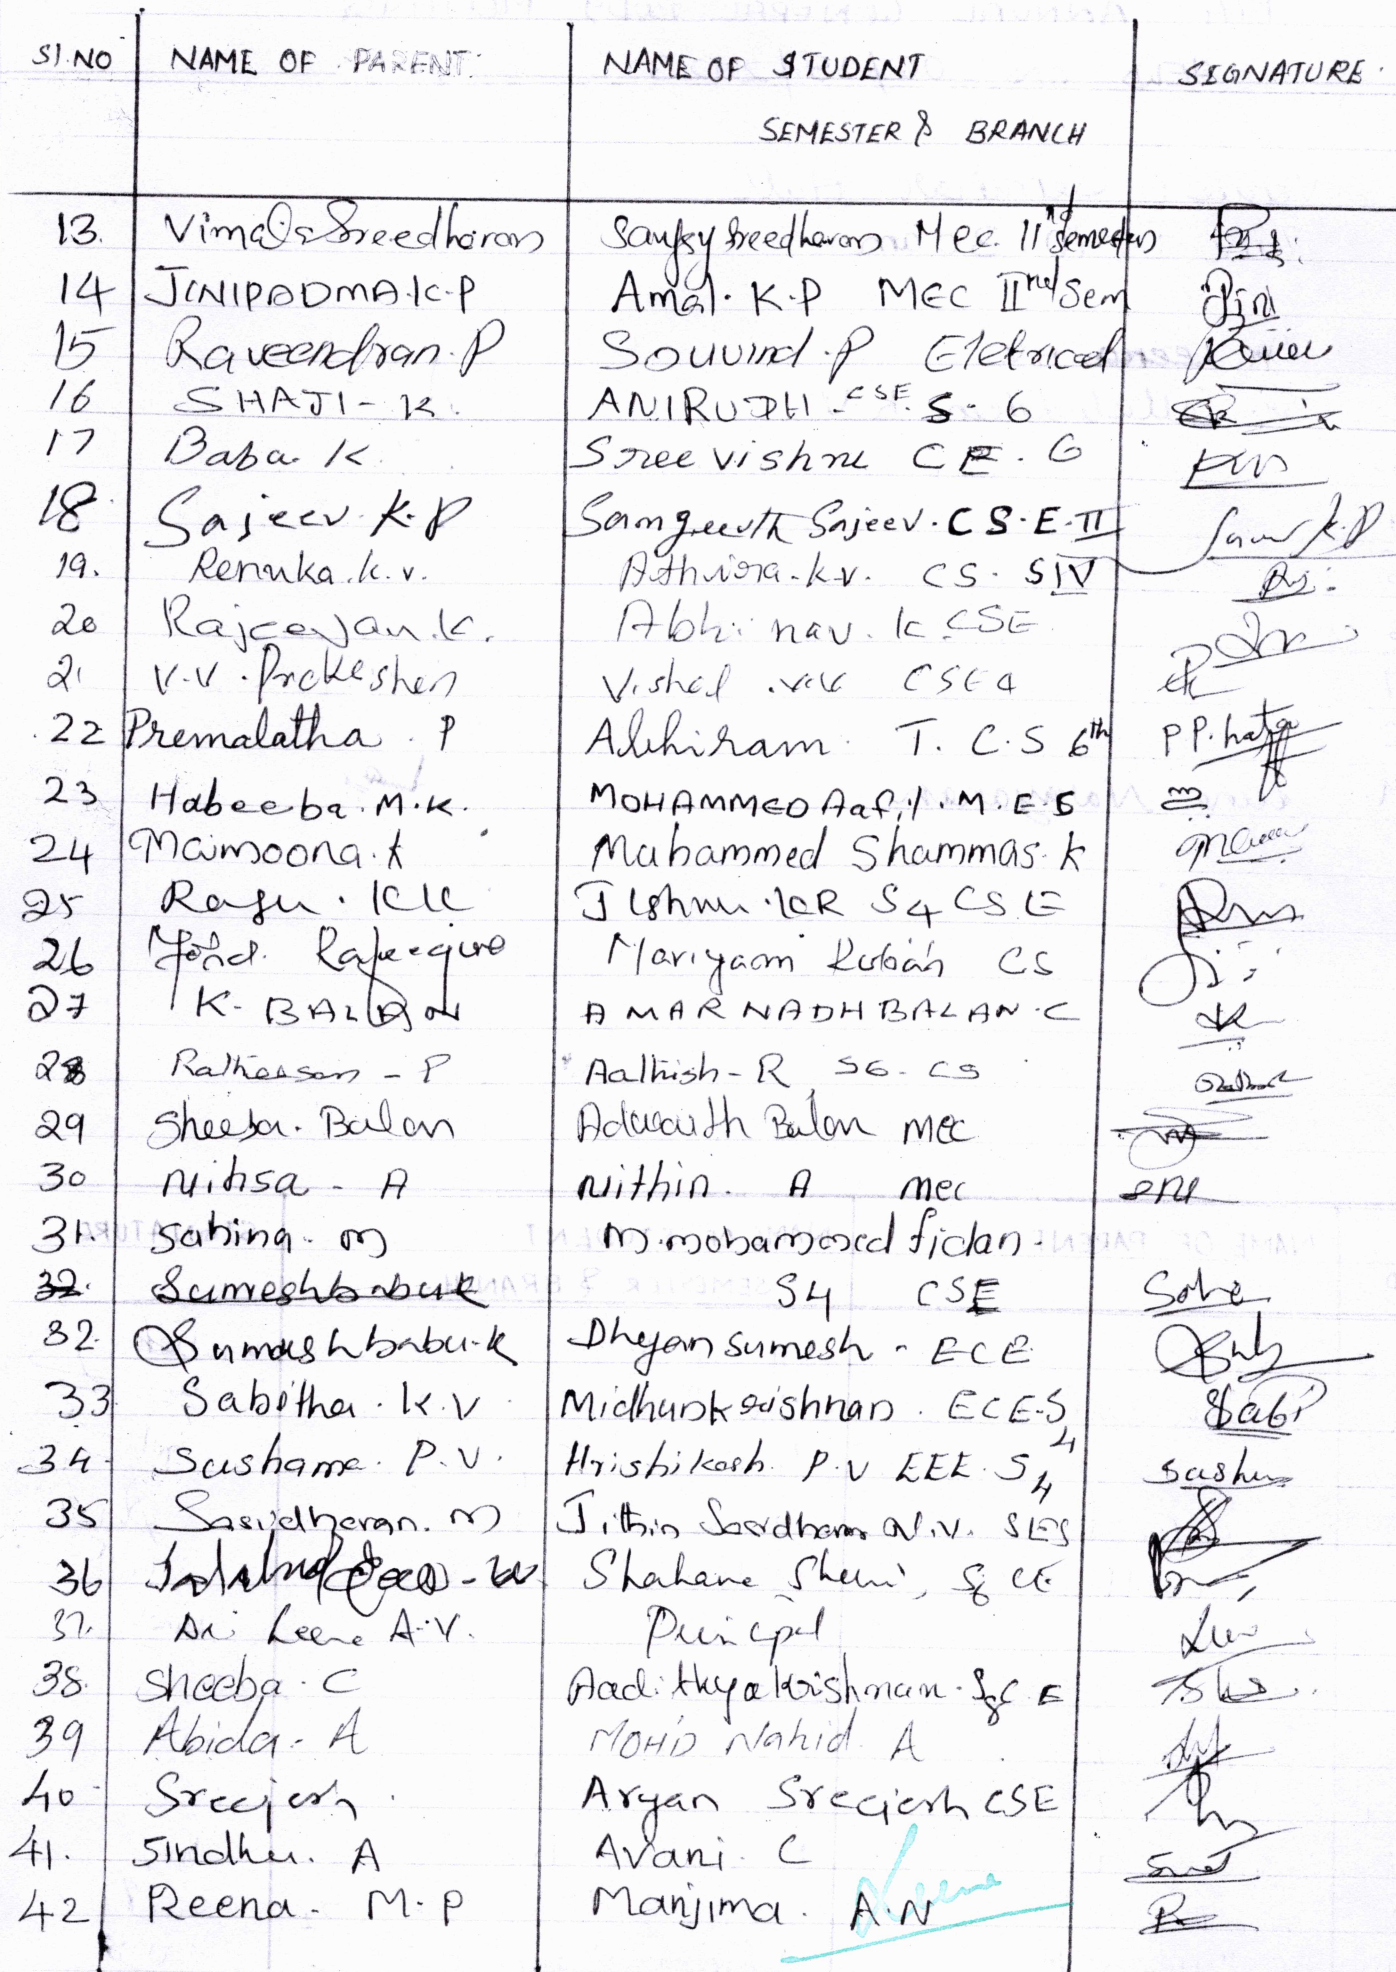 SI.NO NAME OF PARENT NAME OF STUDENT SIGNATURE
SEMESTER & BRANCH
13. Vimala Sreedharan Sanjay Sreedharan Mec. IInd Semester
14 JINIPADMA.K.P Amal. K.P MEC IInd Sem Jini
15 Raveendran. P Souvind. P Eletrical
16 SHAJI - K. ANIRUDH - CSE. S - 6
17 Baba K Sreevishnu CE. 6
18 Sajeev. K.P Sangeeth Sajeev. CS.E-II K.P
19. Renuka.k.v. Athira.k.v. CS. SIV
20 Rajeevan.K. Abhinav. K CSE
21 V.V. Prakeshan Vishal .V.V CSE 4
22 Premalatha. P Abhiram. T. C.S 6th P P. Latga
23 Habeeba.M.K. MOHAMMED Aafil. M.E.S
24 Maimoona.k Muhammed Shammas. K
25 Ragu. KK Jishnu. KR S4 CSE
26 Mohd. Rafeeque Mariyam Rubah CS
27 K. BALAN AMARNADH BALAN.C
28 Ratheesan - P Aathish - R, S6 - CS
29 Sheeba. Balan Adwaith Balan MEC
30 Nihsa - A Nithin. A mec
31. Sahina. M M. mohammed fidan.
32. Sumeshbabu K S4 CSE
32. Sumeshbabu.K Dhyan Sumesh - ECE
33 Sabitha. K.V Midhunkrishnan. ECE-S4 Sabi
34 Sushama. P.V. Hrishikesh. P.V EEE. S4 Sushm
35 Sasidharan. M Jithin Sasidharan N.V.
36 Shahana Sherin, CE
37. Dr. Leena A.V. Principal
38. Sheeba. C Aadithyakrishnan. CE
39 Abida. A MOHD Nahid A
40 Sreejesh. Aryan Sreejesh CSE
41. Sindhu. A Avani. C
42 Reena. M.P Manjima. A.N